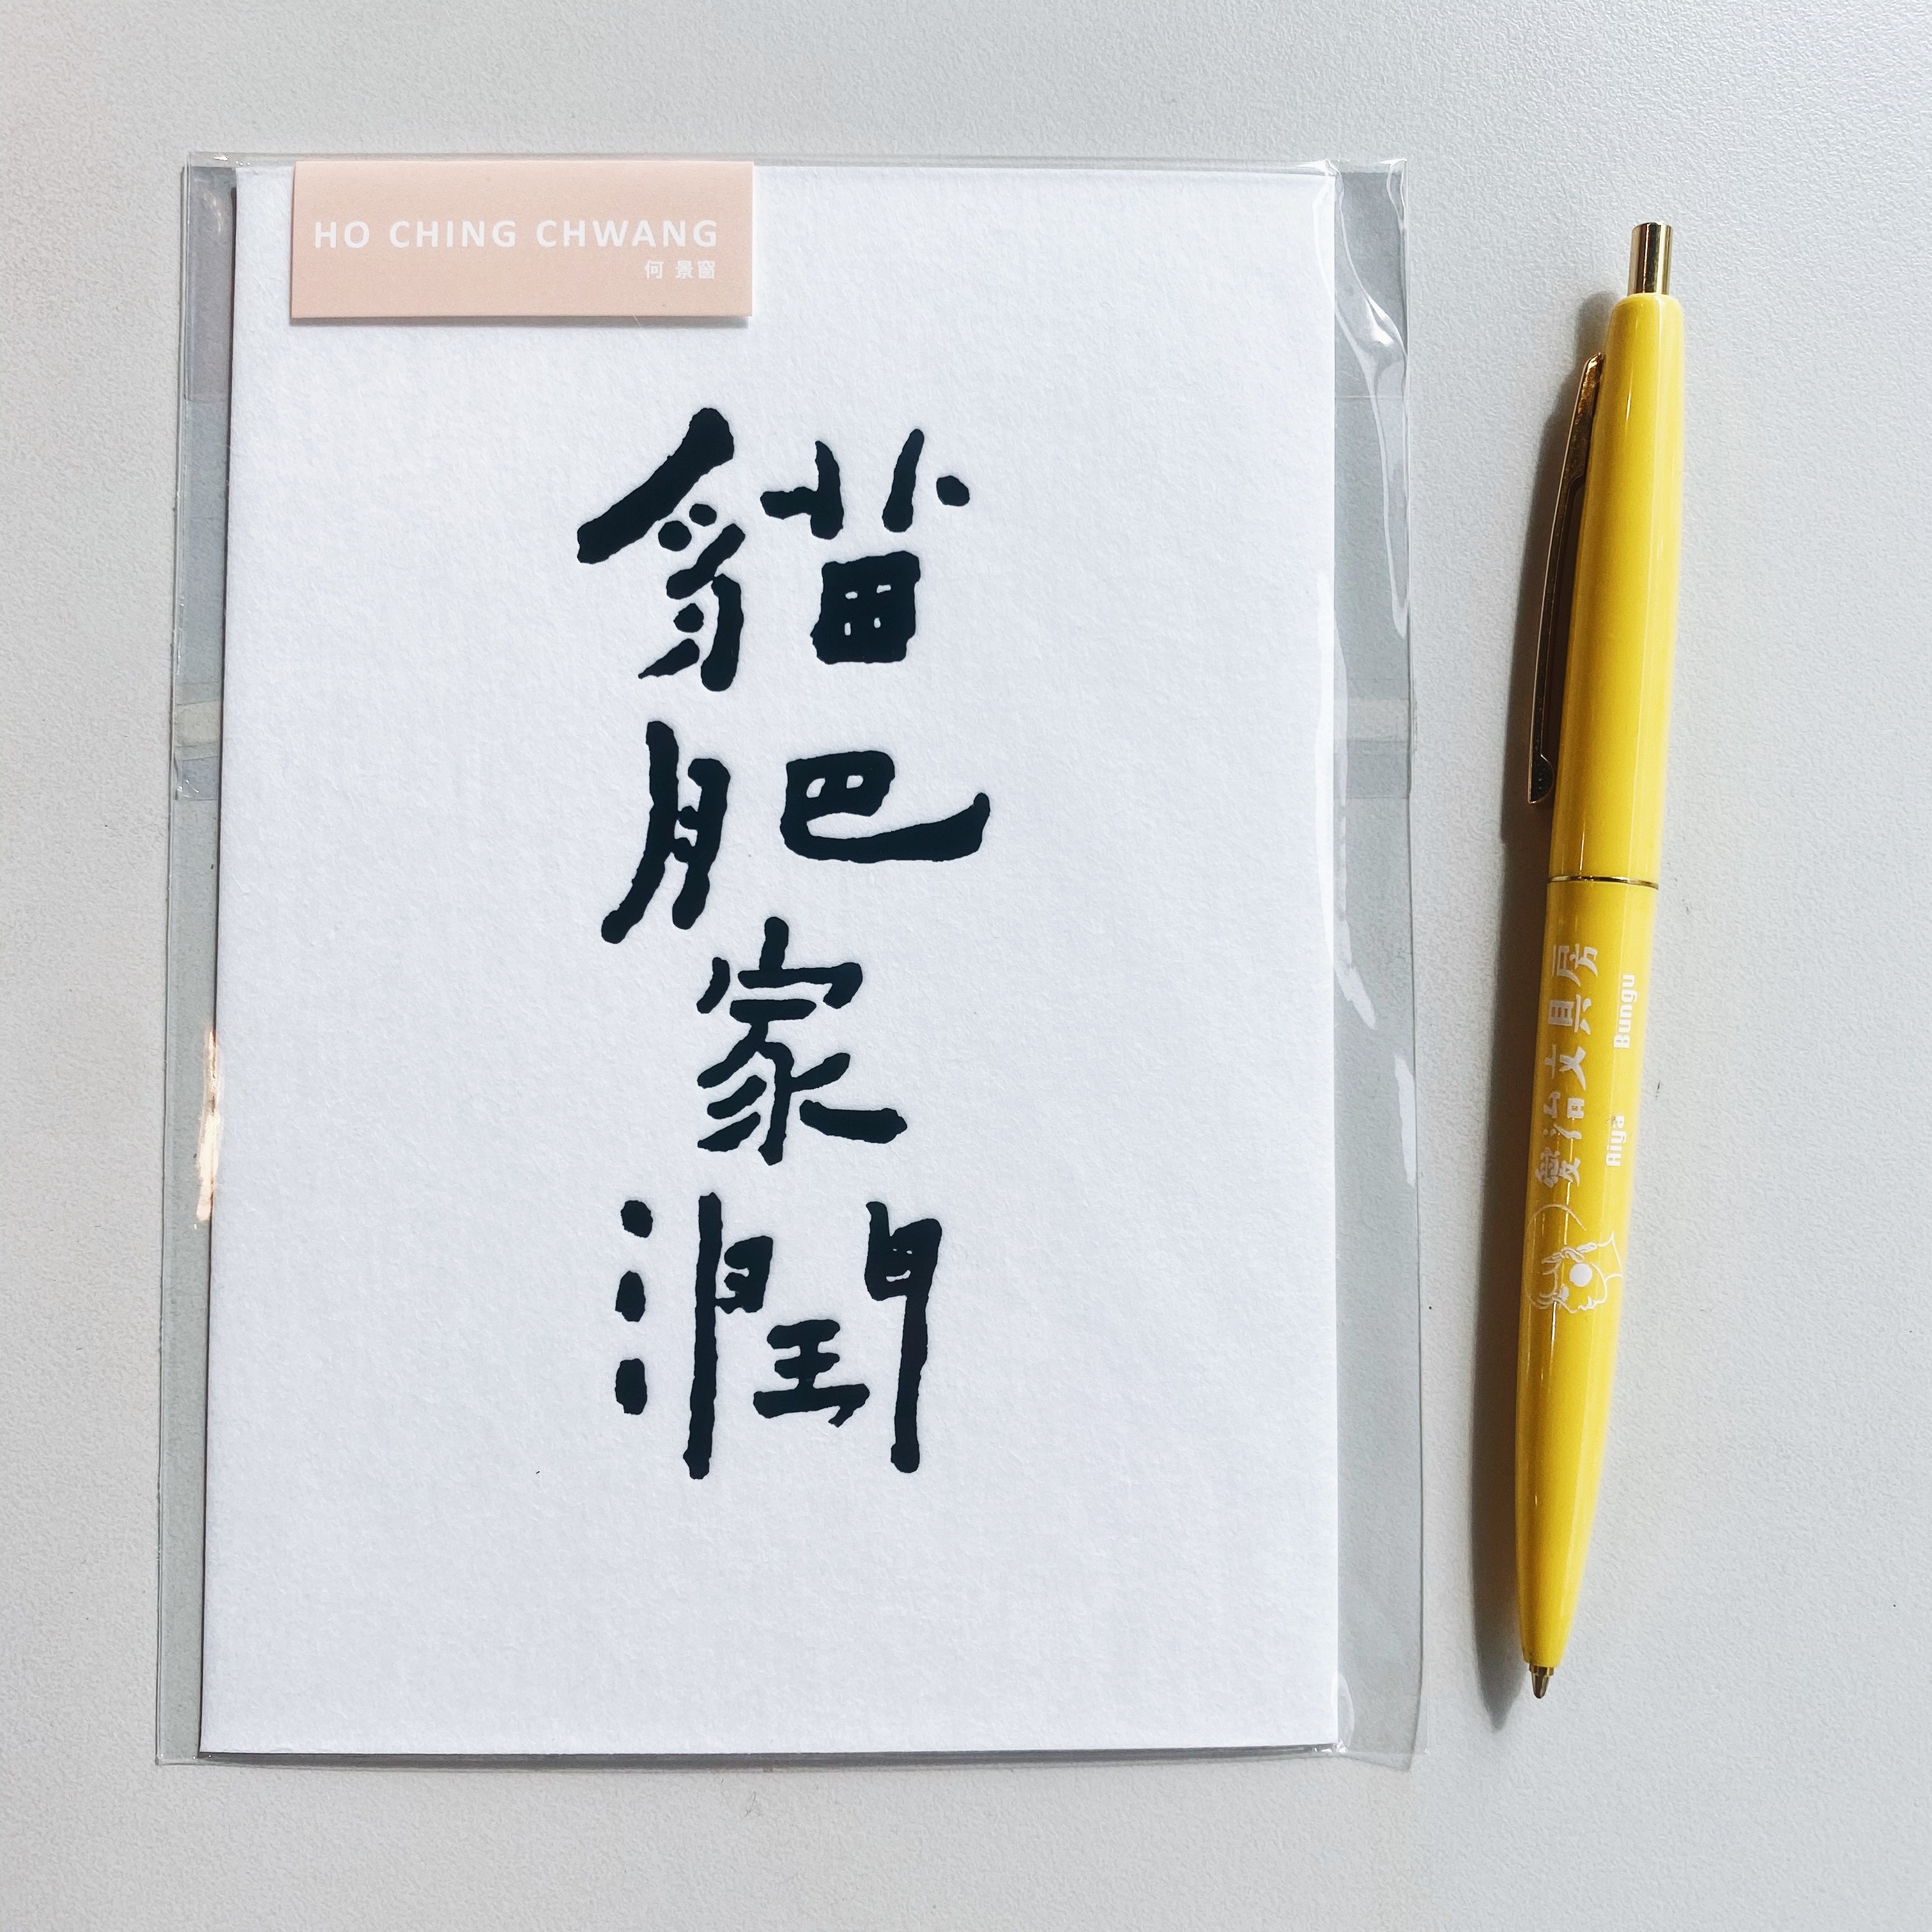 HO CHING CHWANG
何 景窗
貓肥家潤
愛治文具房
Aiya Bungu